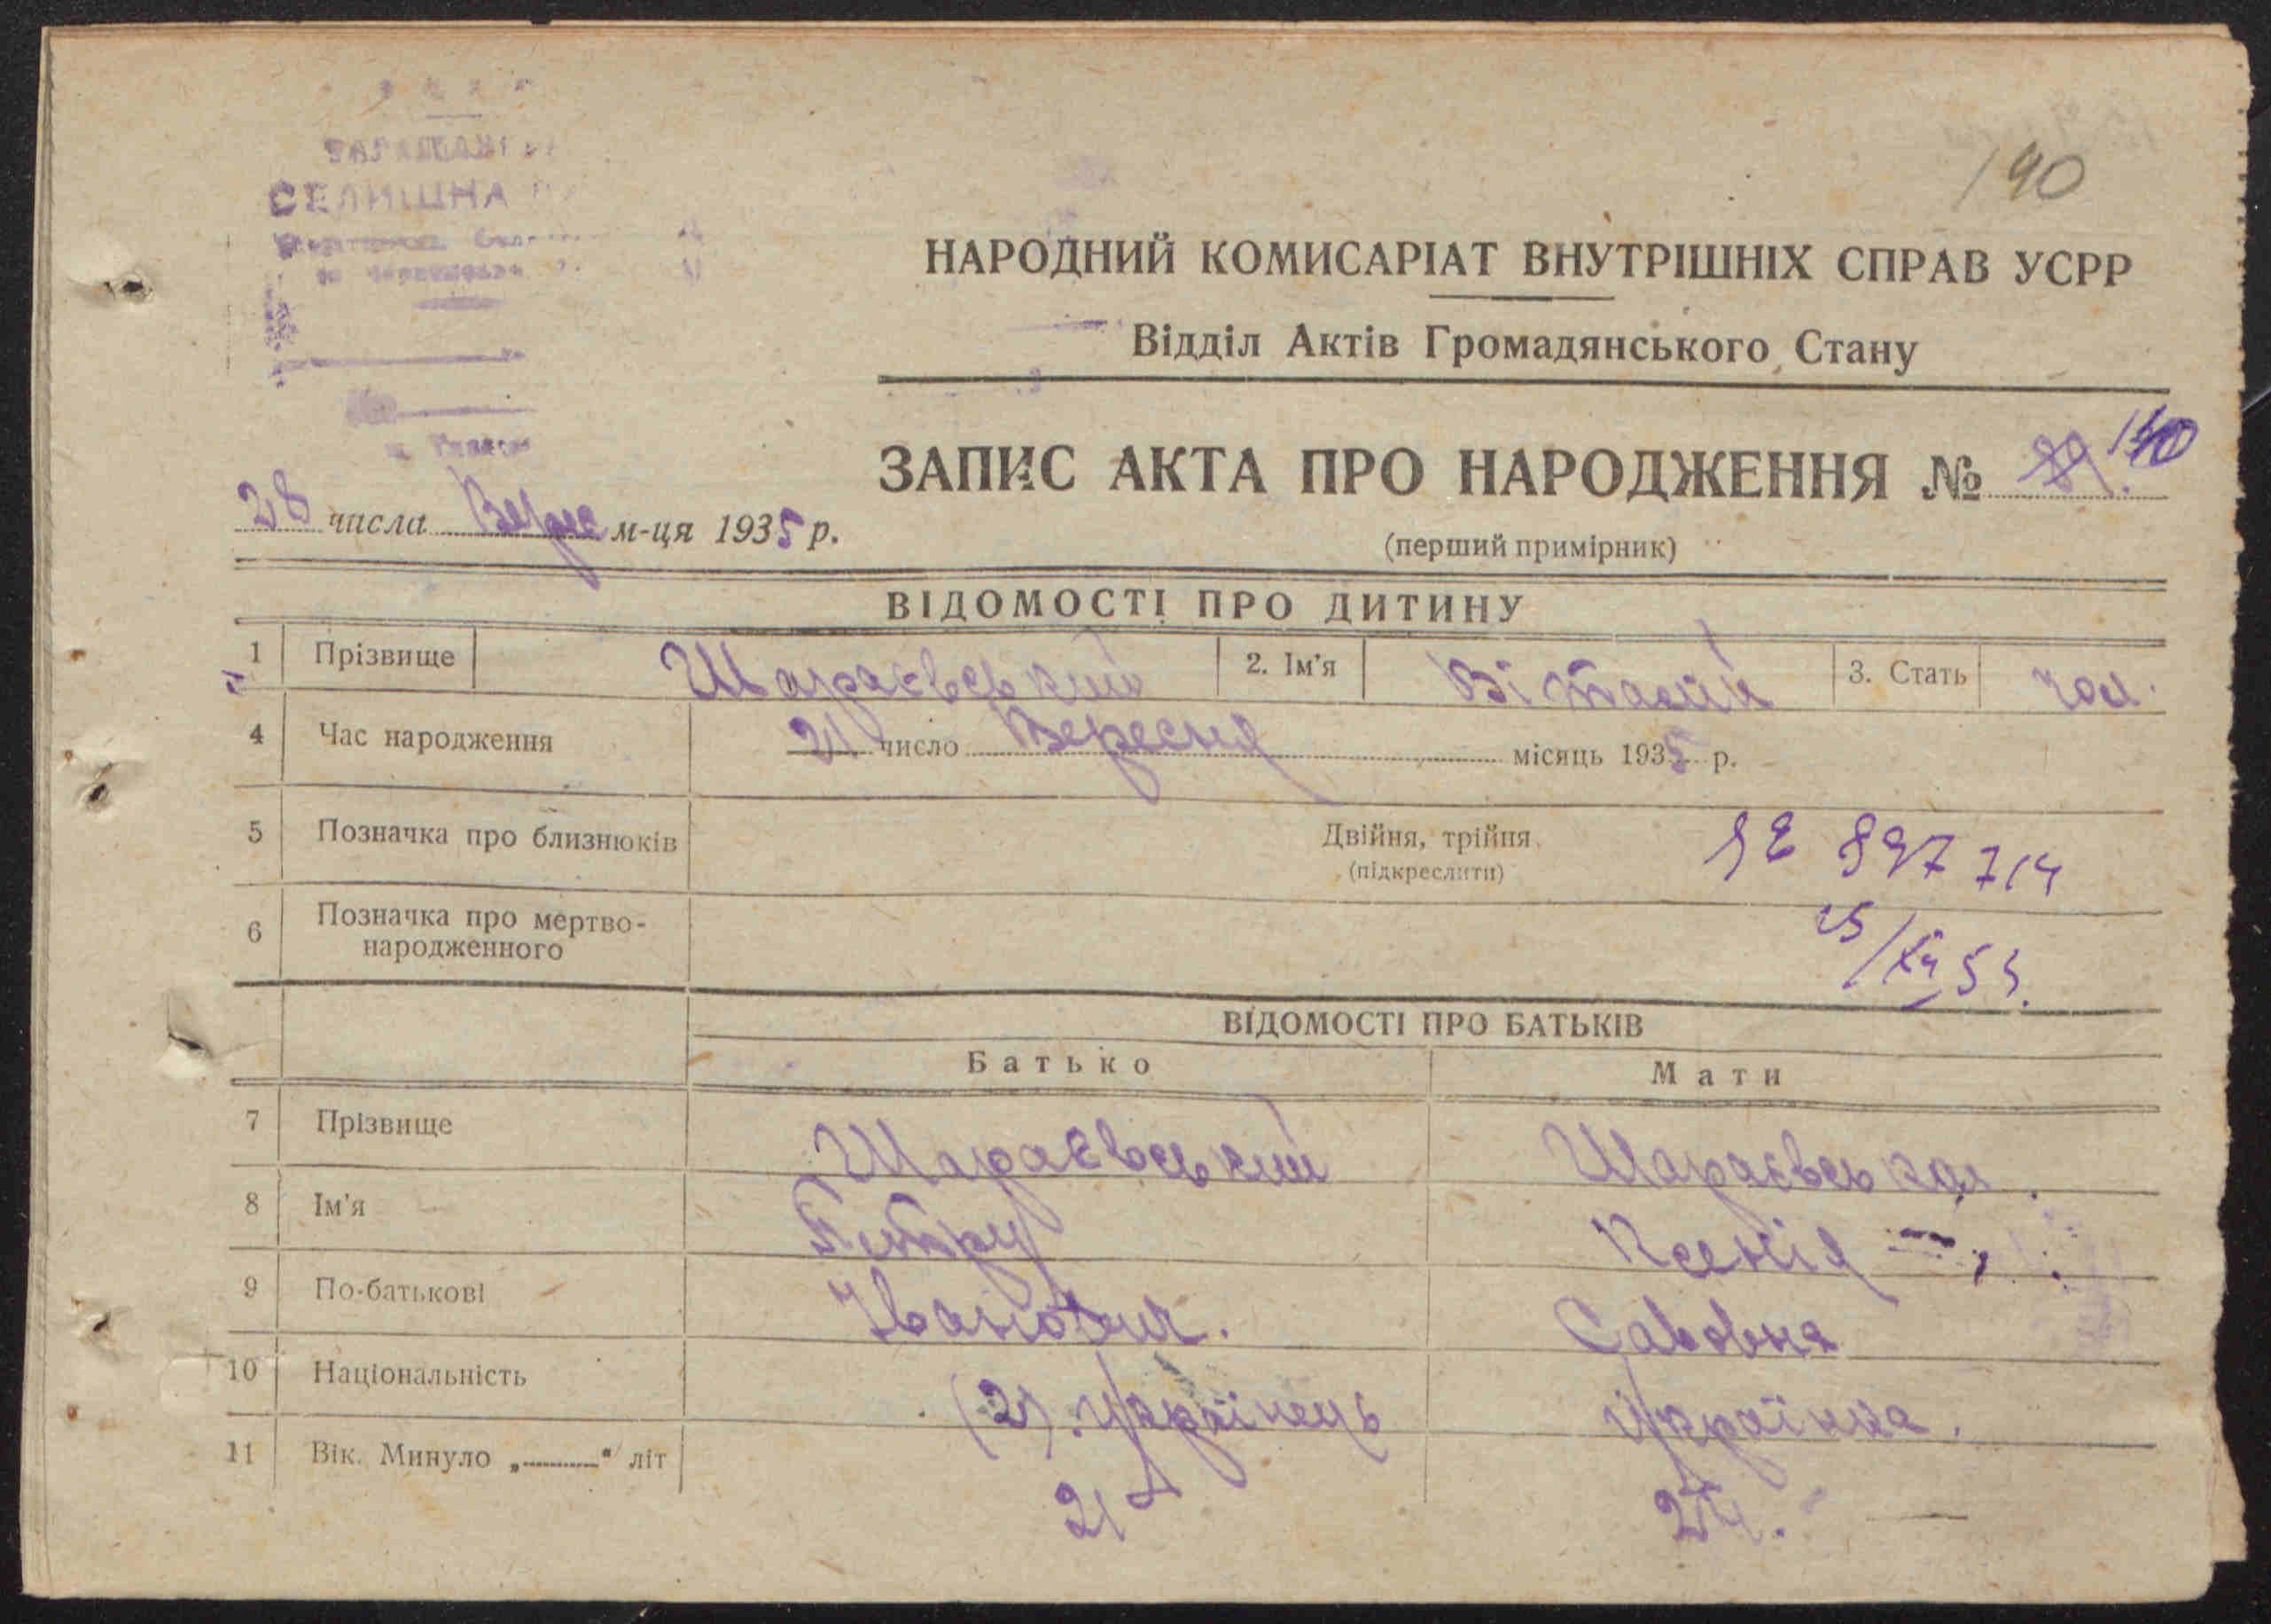 190
СЕЛИЩНА
НАРОДНИЙ КОМИСАРІАТ ВНУТРІШНІХ СПРАВ УСРР
Відділ Актів Громадянського Стану
ЗАПИС АКТА ПРО НАРОДЖЕННЯ №
28 числа м-ця 1935 р.
(перший примірник)
ВІДОМОСТІ ПРО ДИТИНУ
1 Прізвище Шараєвський 2. Ім'я Віталій 3. Стать чол.
4 Час народження 21 число Вересня місяць 1935 р.
5 Позначка про близнюків Двійня, трійня
(підкреслити)
897 714
6 Позначка про мертво-
народженного
ВІДОМОСТІ ПРО БАТЬКІВ
Батько Мати
7 Прізвище Шараєвський Шараєвська
8 Ім'я Петро Ксенія
9 По-батькові Іванович. Савовна
10 Національність (2). Українець Українка.
11 Вік. Минуло „ “ літ
21 24.